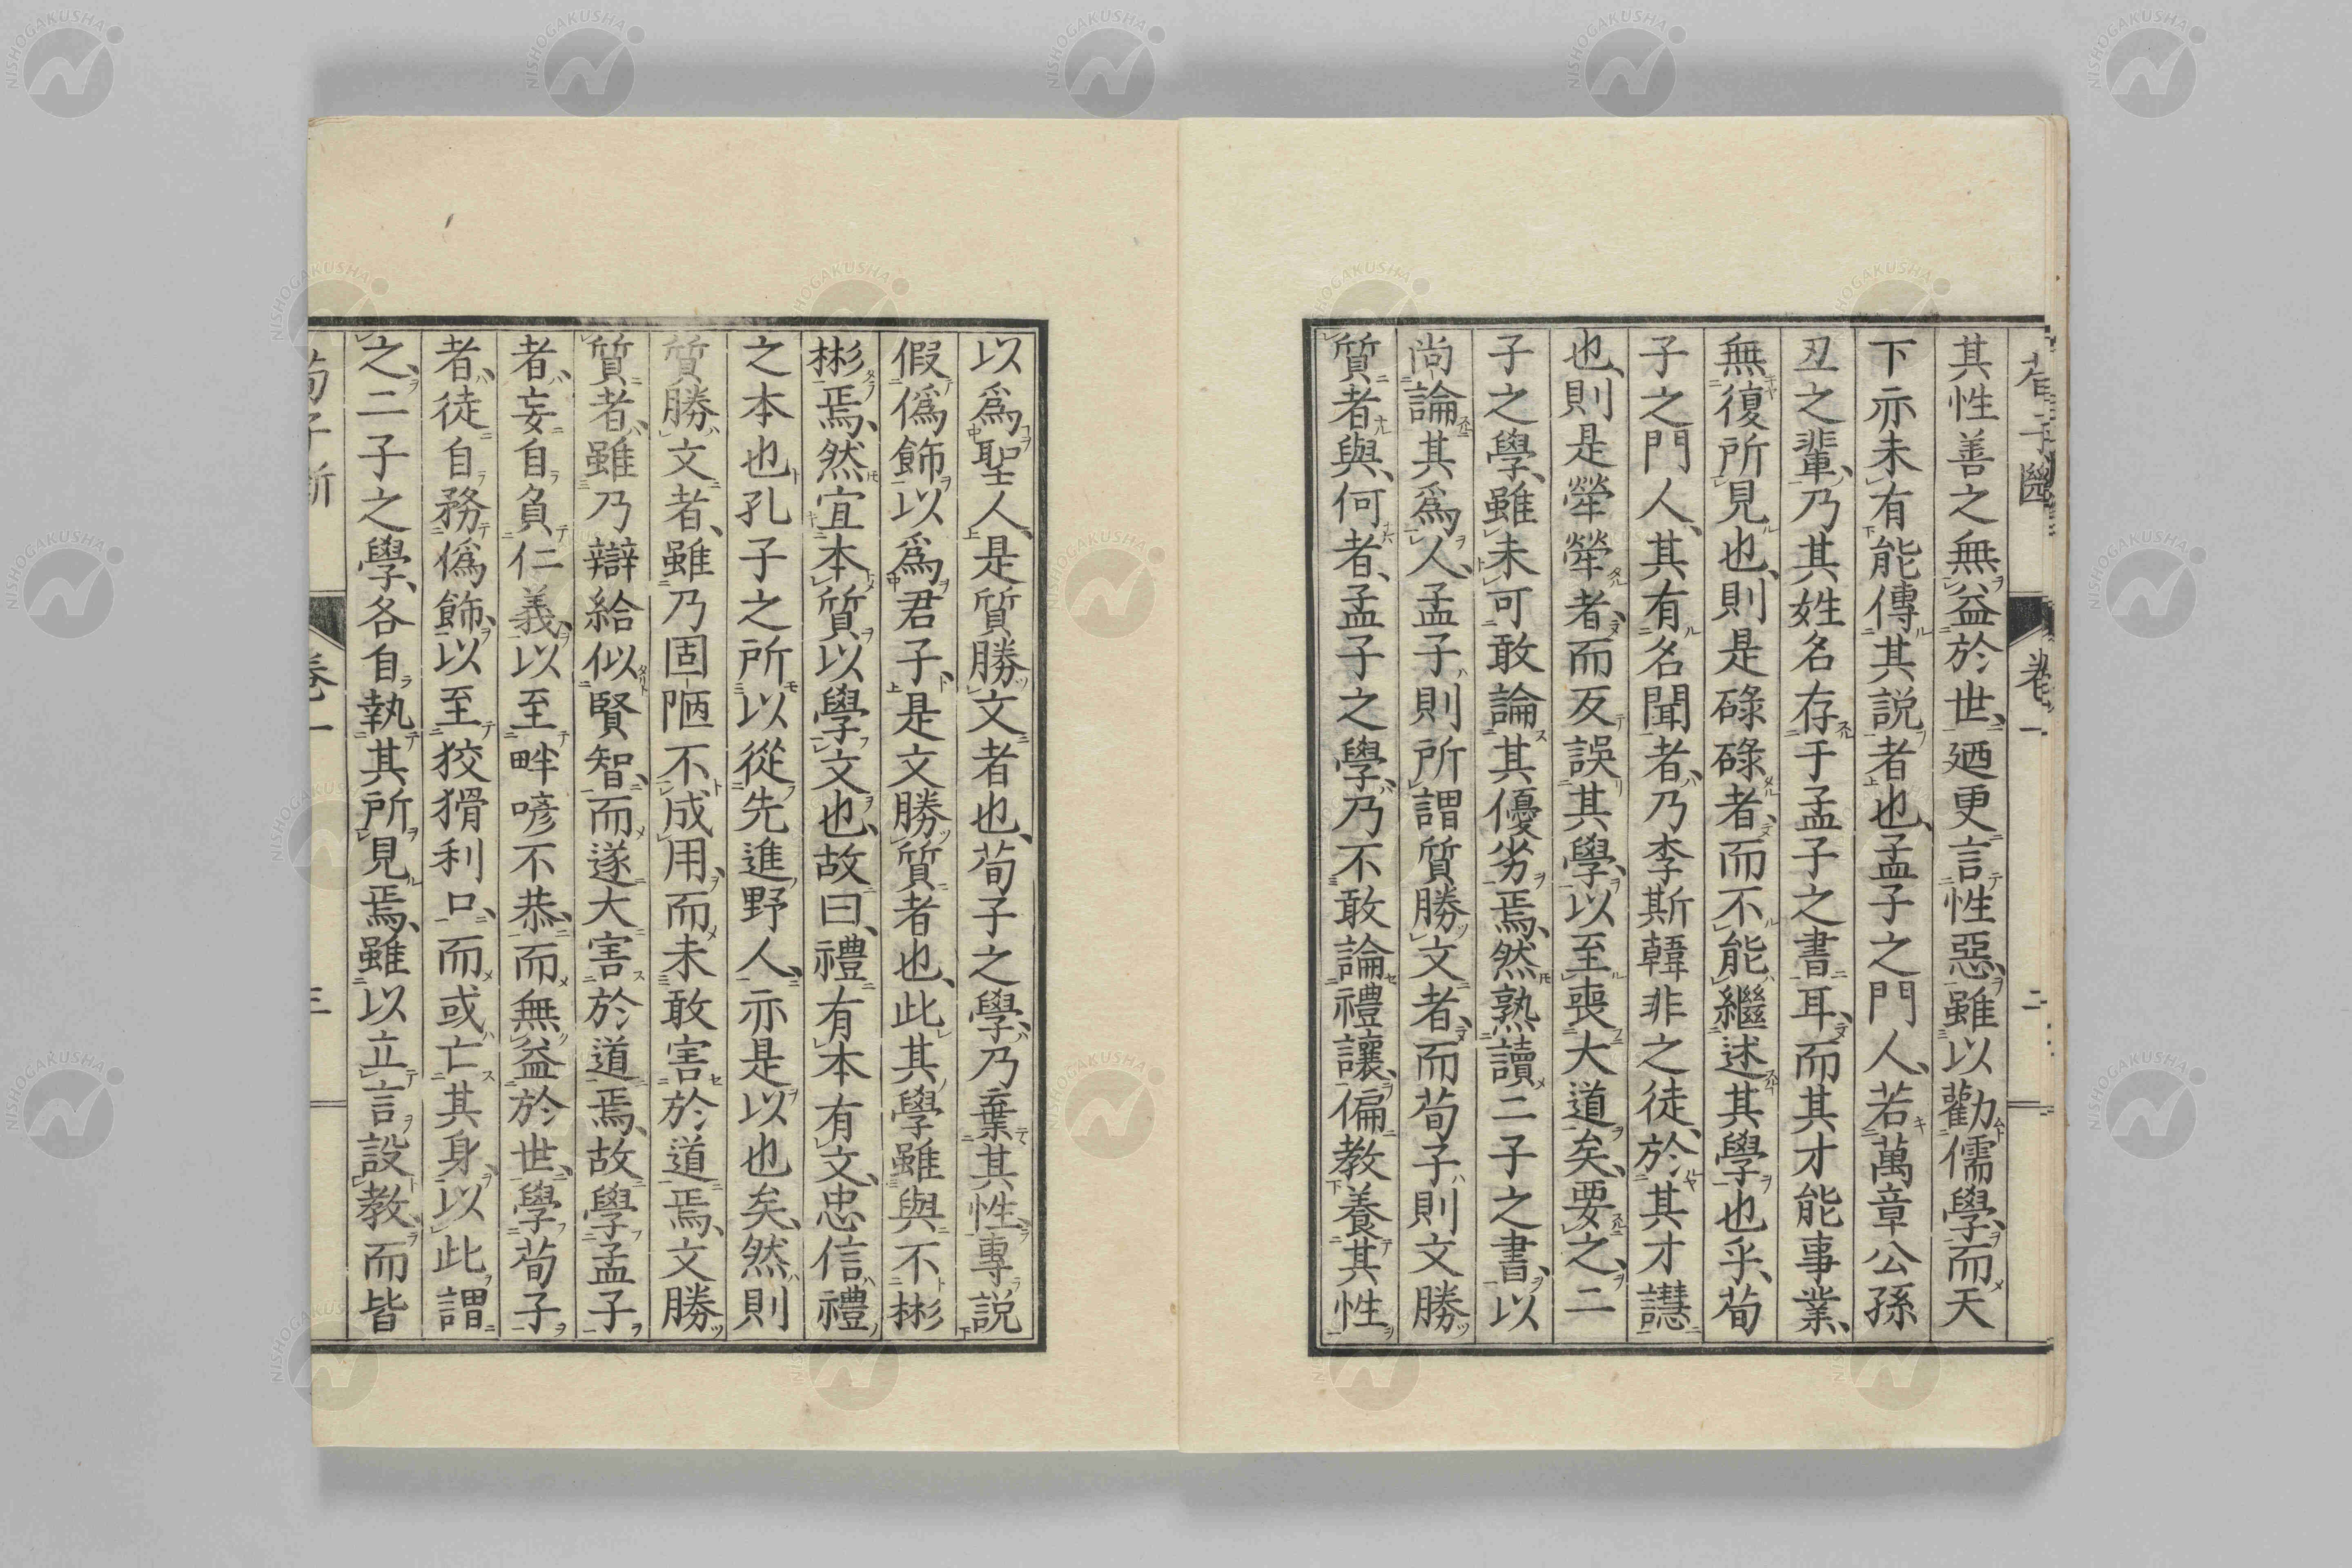 其性善之無益於世、廼更言性惡、雖以勸儒學、而天
下亦未有能傳其說者也、孟子之門人、若萬章公孫
丑之輩、乃其姓名存于孟子之書耳、而其才能事業、
無復所見也、則是碌碌者、而不能繼述其學也乎、荀
子之門人、其有名聞者、乃李斯韓非之徒、於其才譿
也、則是犖犖者、而反誤其學、以至喪大道矣、要之、二
子之學、雖未可敢論其優劣焉、然熟讀二子之書、以
尚論其爲人、孟子則所謂質勝文者、而荀子則文勝
質者與、何者、孟子之學、乃不敢論禮讓、偏教養其性
以爲聖人、是質勝文者也、荀子之學、乃棄其性、專說
假僞飾以爲君子、是文勝質者也、此其學雖與不彬
彬焉、然宜本質以學文也、故曰、禮有本有文、忠信禮
之本也孔子之所以從先進野人、亦是以也矣、然則
質勝文者、雖乃固陋不成用、而未敢害於道焉、文勝
質者、雖乃辯給似賢智、而遂大害於道焉、故學孟子
者、妄自負仁義、以至畔喭不恭、而無益於世、學荀子
者、徒自務僞飾、以至狡猾利口、而或亡其身、以此謂
之、二子之學、各自執其所見焉、雖以立言設教、而皆
荀子斷
卷一
三